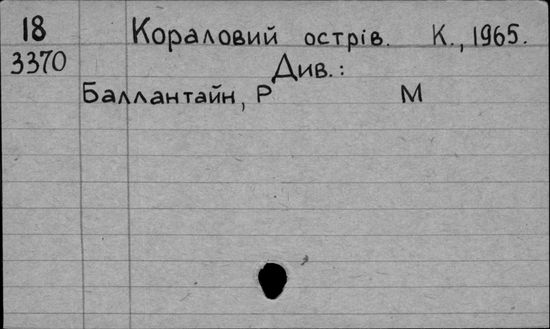 18 Кораловий острів. К., 1965.
3370 Див.:
Баллантайн, Р М